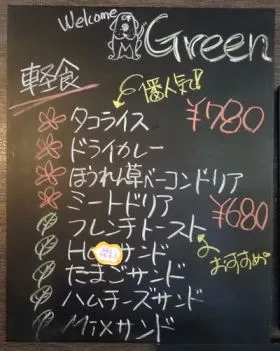 Welcome
Green
軽食
1番人気!!
タコライス ¥780
ドライカレー
ほうれん草ベーコンドリア
ミートドリア ¥680
フレンチトースト
おすすめ。
サンド
たまごサンド
ハムチーズサンド
Mixサンド